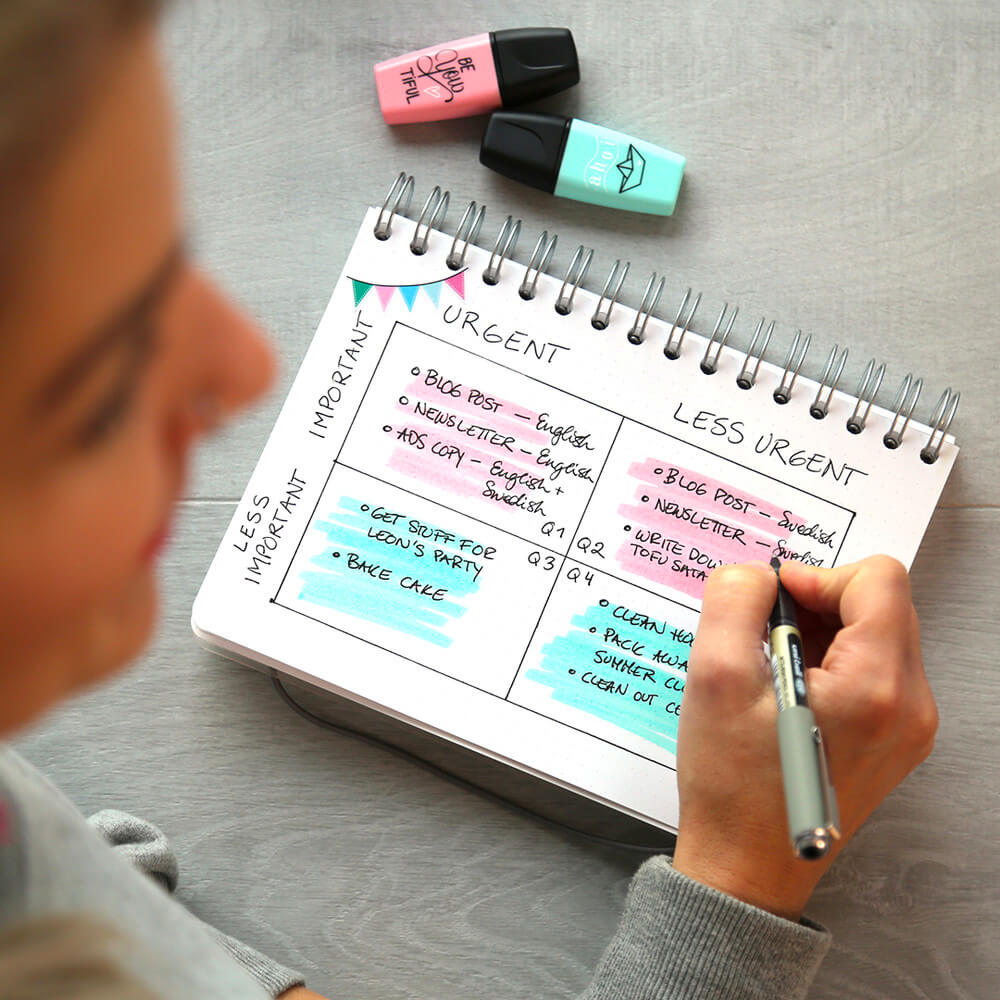 BE
You
TIFUL
ahoi
URGENT
LESS URGENT
IMPORTANT
• BLOG POST – English
• NEWSLETTER – English
• ADS COPY – English +
Swedish
Q1
• BLOG POST – Swedish
• NEWSLETTER – Swedish
• WRITE
TOFU
Q2
LESS
IMPORTANT
• GET STUFF FOR
LEON'S PARTY
• BAKE CAKE
Q3
Q4
• CLEAN
• PACK
SUMMER
• CLEAN OUT